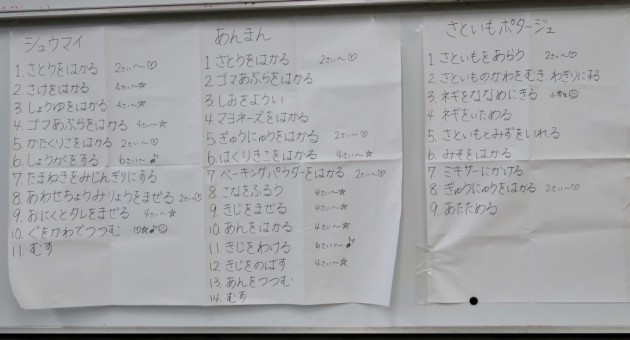 シュウマイ
1. さとうをはかる 2さい〜♡
2. さけをはかる 4さい〜☆
3. しょうゆをはかる 4さい〜☆
4. ゴマあぶらをはかる 4さい〜☆
5. かたくりこをはかる 2さい〜♡
6. しょうがをする 6さい〜♪
7. たまねぎをみじんぎりにする
8. あわせちょうみりょうをまぜる 2さい〜♡
9. おにくとタレをまぜる 4さい〜☆
10. ぐをかわでつつむ ♡☆♪☺
11. むす
あんまん
1. さとうをはかる 2さい〜♡
2. ゴマあぶらをはかる
3. しおをようい
4. マヨネーズをはかる
5. ぎゅうにゅうをはかる 2さい〜♡
6. はくりきこをはかる 4さい〜☆
7. ベーキングパウダーをはかる 2さい〜♡
8. こなをふるう 4さい〜☆
9. きじをまぜる 4さい〜☆
10. あんをはかる 4さい〜☆
11. きじをわける 6さい〜♪
12. きじをのばす 4さい〜☆
13. あんをつつむ
14. むす
さといもポタージュ
1. さといもをあらう 2さい〜♡
2. さといものかわをむき わぎりにする
3. ネギをななめにきる ☺
4. ネギをいためる
5. さといもとみずをいれる
6. みそをはかる
7. ミキサーにかける
8. ぎゅうにゅうをはかる 2さい〜♡
9. あたためる